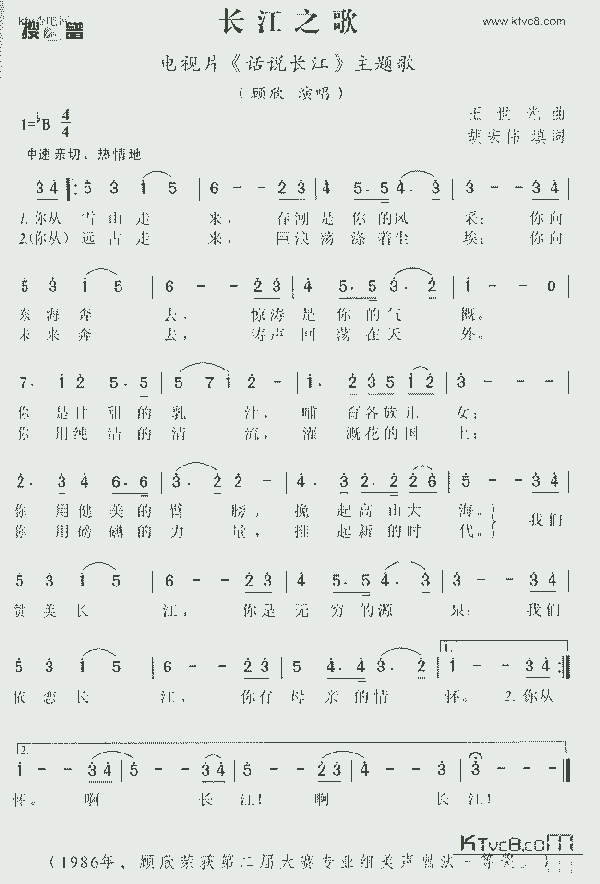 长江之歌
www.ktvc8.com
电视片《话说长江》主题歌
（顾欣 演唱）
1=♭B 4/4
王世光 曲
胡宏伟 填词
中速 亲切、热情地
3 4 ‖: 5 3 1 5 | 6 - - 2 3 | 4 5. 5 4. 3 | 3 - - 3 4 |
1.你从 雪山走 来， 春潮是你的风 采； 你向
2.(你从) 远古走 来， 巨浪荡涤着尘 埃； 你向
5 3 1 5 | 6 - - 2 3 | 4 5. 5 3. 2 | 1 - - 0 |
东海奔 去， 惊涛是你的气 概。
未来奔 去， 涛声回荡在天 外。
7. 1 2 5. 5 | 5 7 1 2 - | 1. 2 3 5 1 2 | 3 - - - |
你 是甘甜的乳 汁， 哺育各族儿 女；
你 用纯洁的清 流， 灌溉花的国 土；
2. 3 4 6. 6 | 3. 2 2 - | 4. 3 2. 2 2 6 | 5 - - 3 4 |
你 用健美的臂 膀， 挽起高山大 海。} 我们
你 用磅礴的力 量， 推起新的时 代。
5 3 1 5 | 6 - - 2 3 | 4 5. 5 4. 3 | 3 - - 3 4 |
赞美长 江， 你是无穷的源 泉； 我们
1.
5 3 1 5 | 6 - - 2 3 | 5 4. 4 3. 2 | 1 - - 3 4 :‖
依恋长 江， 你有母亲的情 怀。 2.你从
2.
1 - - 3 4 | 5 - - 3 4 | 5 - - 2 3 | 4 - - 3 | 3 - - - ‖
怀。 啊 长江！ 啊 长江！
KTvc8.com
（1986年，顾欣荣获第二届大赛专业组美声唱法一等奖。）